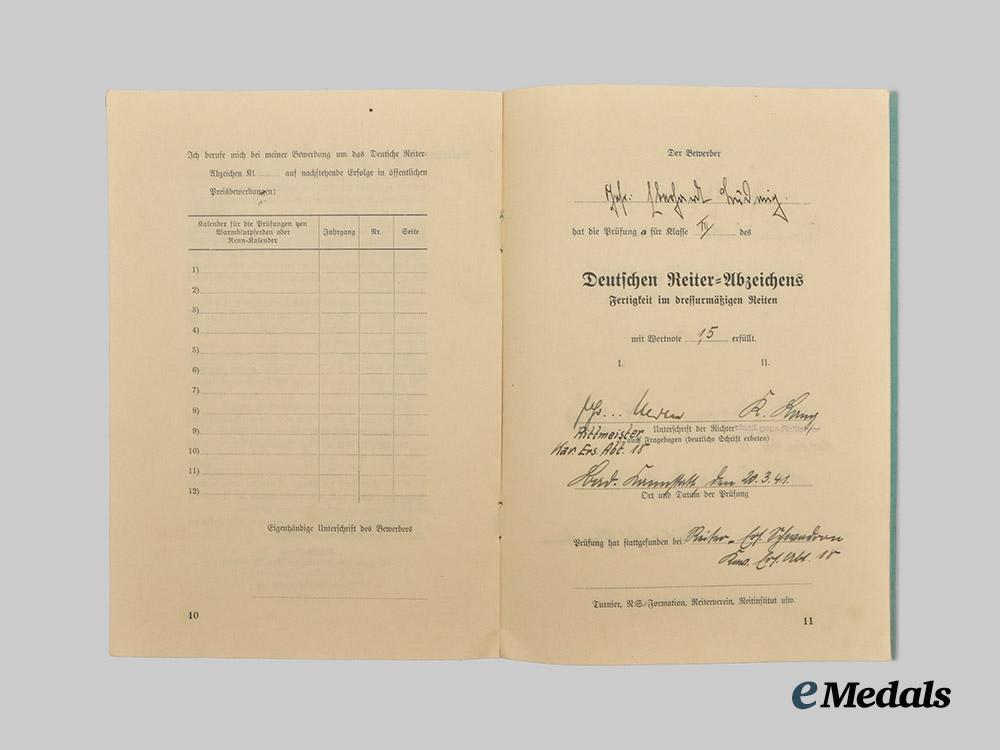 Ich berufe mich bei meiner Bewerbung um das Deutsche Reiter-
Abzeichen Kl. auf nachstehende Erfolge in öffentlichen
Preisbewerbungen:
Kalender für die Prüfungen von Warmblutpferden oder Renn-Kalender Jahrgang Nr. Seite
1)
2)
3)
4)
5)
6)
7)
8)
9)
10)
11)
12)
Eigenhändige Unterschrift des Bewerbers
10
Der Bewerber
Eberhardt Ludwig.
hat die Prüfung a für Klasse III des
Deutschen Reiter-Abzeichens
Fertigkeit im dressurmäßigen Reiten
mit Wertnote 1,5 erfüllt.
I. II.
Unterschrift der Richter
Rittmeister
auch Fragebogen (deutliche Schrift erbeten)
Kav. Ers. Abt. 18
Bad. Cannstatt den 20.3.41.
Ort und Datum der Prüfung
Prüfung hat stattgefunden bei: Reiter-Ers. Schwadron
Kav. Ers. Abt. 18
Turnier, N.S.-Formation, Reiterverein, Reitinstitut usw.
11
eMedals